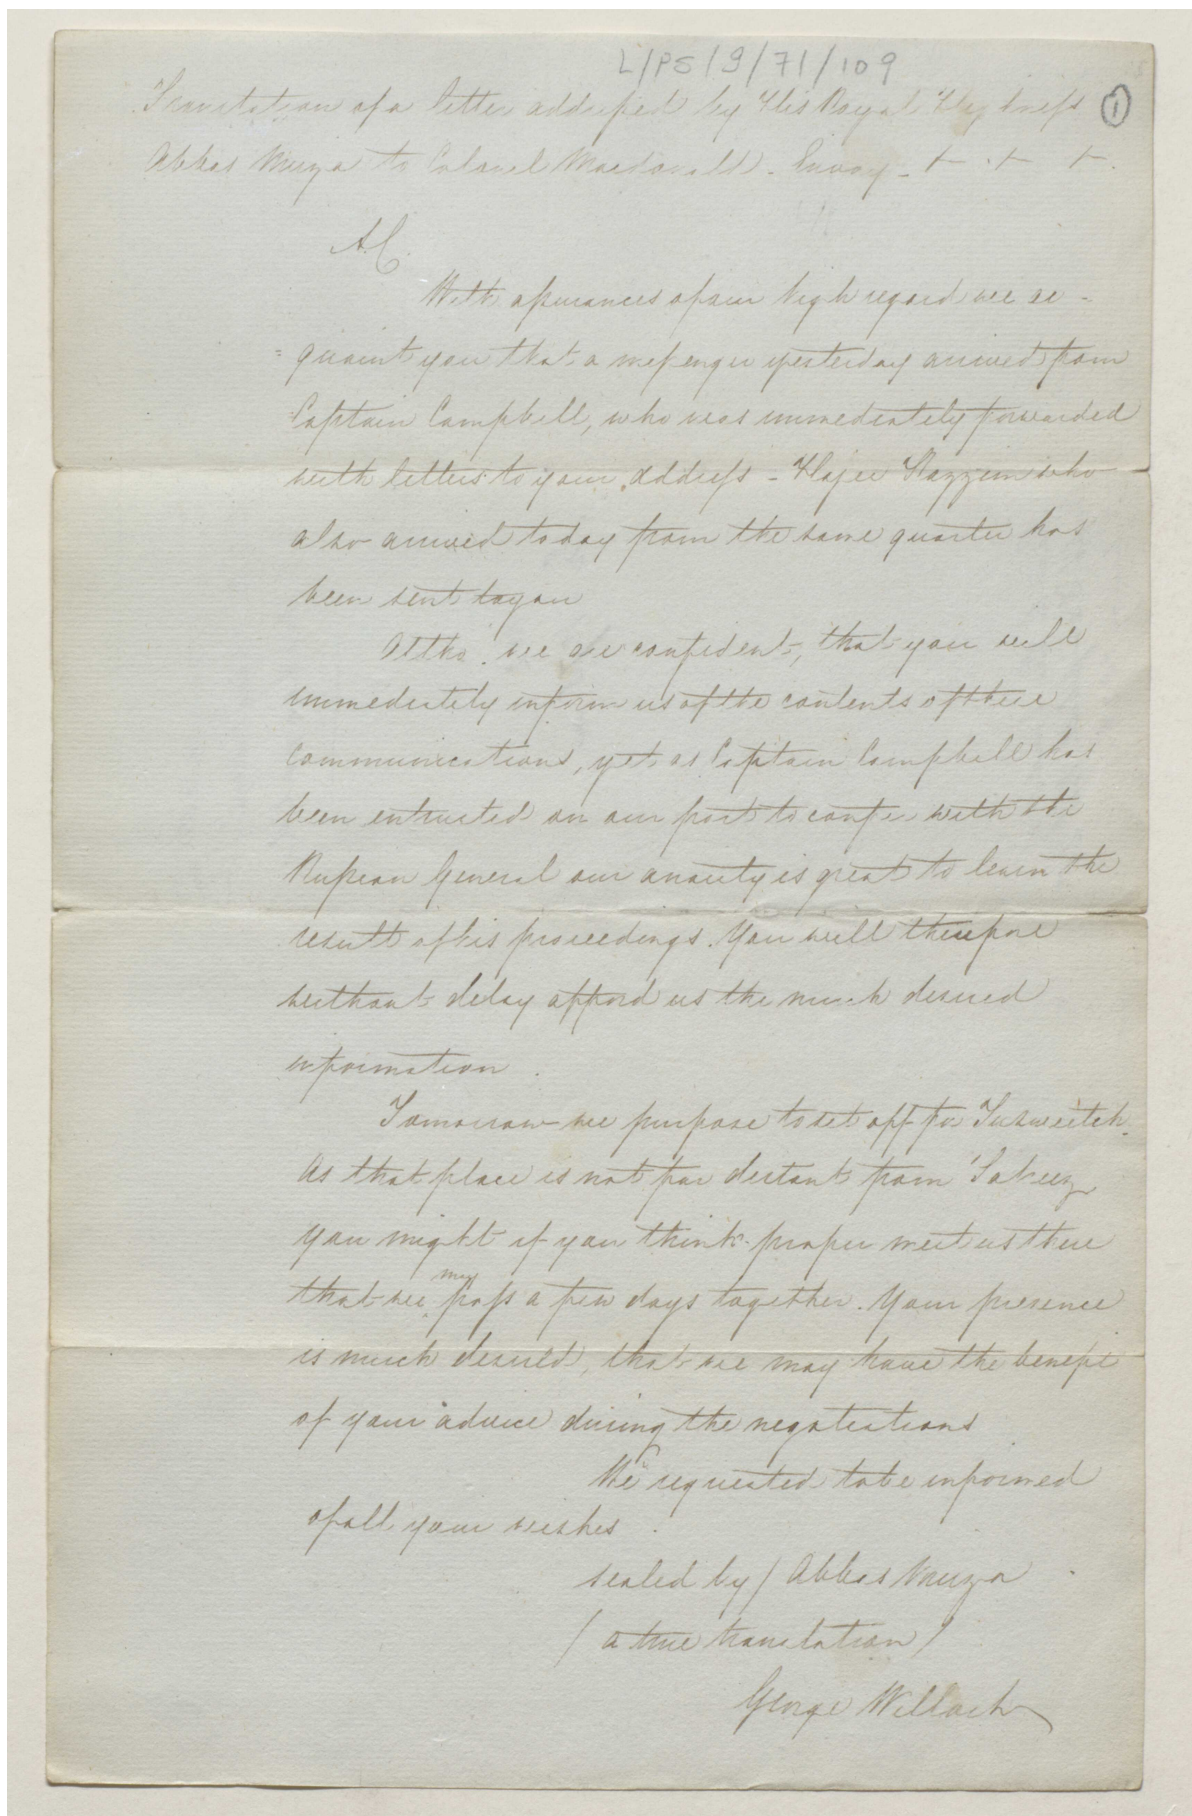 L/PS/9/71/109
Translation of a letter addressed by His Royal Highness
1
Abbas Mirza to Colonel Macdonald - Envoy -
A.C.
With assurances of our high regard we ac-
=quaint you that a messenger yesterday arrived from
Captain Campbell, who was immediately forwarded
with letters to your address - Hajee Kazzim who
also arrived today from the same quarter has
been sent to you
Altho. we are confident, that you will
immediately inform us of the contents of these
communications, yet as Captain Campbell has
been entrusted on our part to confer with the
Russian General our anxiety is great to learn the
result of his proceedings. You will therefore
without delay afford us the much desired
information.
Tomorrow we purpose to set off for
As that place is not far distant from Tabreez
you might if you think proper meet us there
that we may pass a few days together. Your presence
is much desired, that we may have the benefit
of your advice during the negotiations
We requested to be informed
of all your wishes.
sealed by / Abbas Mirza
/ a true translation /
George Willock